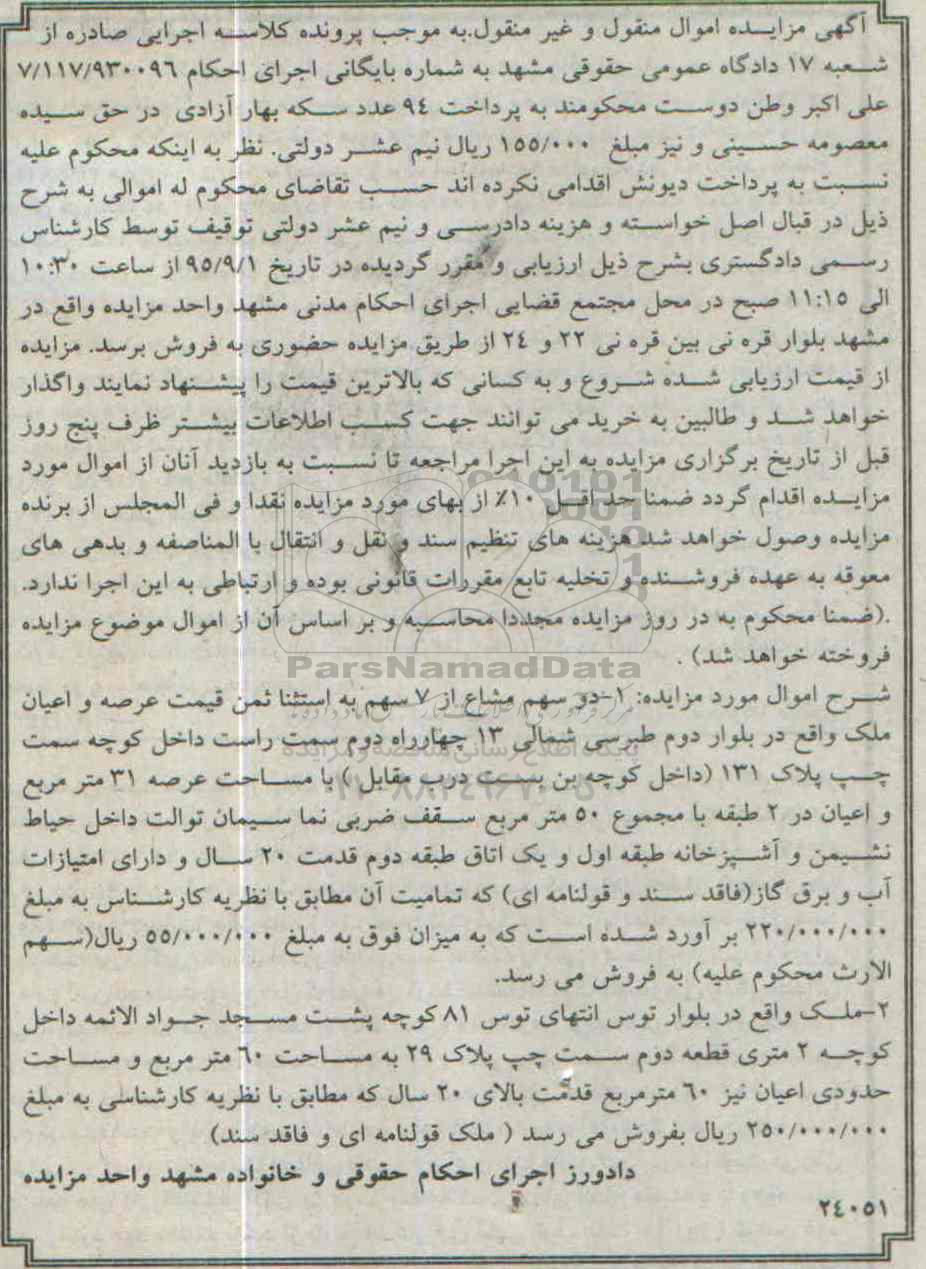 آگهی مزایده اموال منقول و غیر منقول.به موجب پرونده کلاسه اجرایی صادره از
شعبه ۱۷ دادگاه عمومی حقوقی مشهد به شماره بایگانی اجرای احکام ۷/۱۱۷/۹۳۰۰۹۶
علی اکبر وطن دوست محکومند به پرداخت ۹٤ عدد سکه بهار آزادی در حق سیده
معصومه حسینی و نیز مبلغ ۱۵۵/۰۰۰ ریال نیم عشر دولتی. نظر به اینکه محکوم علیه
نسبت به پرداخت دیونش اقدامی نکرده اند حسب تقاضای محکوم له اموالی به شرح
ذیل در قبال اصل خواسته و هزینه دادرسی و نیم عشر دولتی توقیف توسط کارشناس
رسمی دادگستری بشرح ذیل ارزیابی و مقرر گردیده در تاریخ ۹۵/۹/۱ از ساعت ۱۰:۳۰
الی ۱۱:۱۵ صبح در محل مجتمع قضایی اجرای احکام مدنی مشهد واحد مزایده واقع در
مشهد بلوار قره نی بین قره نی ۲۲ و ۲٤ از طریق مزایده حضوری به فروش برسد. مزایده
از قیمت ارزیابی شده شروع و به کسانی که بالاترین قیمت را پیشنهاد نمایند واگذار
خواهد شد و طالبین به خرید می توانند جهت کسب اطلاعات بیشتر ظرف پنج روز
قبل از تاریخ برگزاری مزایده به این اجرا مراجعه تا نسبت به بازدید آنان از اموال مورد
مزایده اقدام گردد ضمنا حداقل ۱۰٪ از بهای مورد مزایده نقدا و فی المجلس از برنده
مزایده وصول خواهد شد هزینه های تنظیم سند و نقل و انتقال با المناصفه و بدهی های
معوقه به عهده فروشنده و تخلیه تابع مقررات قانونی بوده و ارتباطی به این اجرا ندارد.
.(ضمنا محکوم به در روز مزایده مجددا محاسبه و بر اساس آن از اموال موضوع مزایده
فروخته خواهد شد) .
ParsNamadData
شرح اموال مورد مزایده: ۱-دو سهم مشاع از ۷ سهم به استثنا ثمن قیمت عرصه و اعیان
ملک واقع در بلوار دوم طبرسی شمالی ۱۳ چهارراه دوم سمت راست داخل کوچه سمت
چپ پلاک ۱۳۱ (داخل کوچه بن بست درب مقابل ) با مساحت عرصه ۳۱ متر مربع
و اعیان در ۲ طبقه با مجموع ۵۰ متر مربع سقف ضربی نما سیمان توالت داخل حیاط
نشیمن و آشپزخانه طبقه اول و یک اتاق طبقه دوم قدمت ۲۰ سال و دارای امتیازات
آب و برق گاز(فاقد سند و قولنامه ای) که تمامیت آن مطابق با نظریه کارشناس به مبلغ
۲۲۰/۰۰۰/۰۰۰ بر آورد شده است که به میزان فوق به مبلغ ۵۵/۰۰۰/۰۰۰ ریال(سهم
الارث محکوم علیه) به فروش می رسد.
۲-ملک واقع در بلوار توس انتهای توس ۸۱ کوچه پشت مسجد جواد الائمه داخل
کوچه ۲ متری قطعه دوم سمت چپ پلاک ۲۹ به مساحت ٦۰ متر مربع و مساحت
حدودی اعیان نیز ٦۰ مترمربع قدمت بالای ۲۰ سال که مطابق با نظریه کارشناسی به مبلغ
۲۵۰/۰۰۰/۰۰۰ ریال بفروش می رسد ( ملک قولنامه ای و فاقد سند)
دادورز اجرای احکام حقوقی و خانواده مشهد واحد مزایده
۲٤۰۵۱